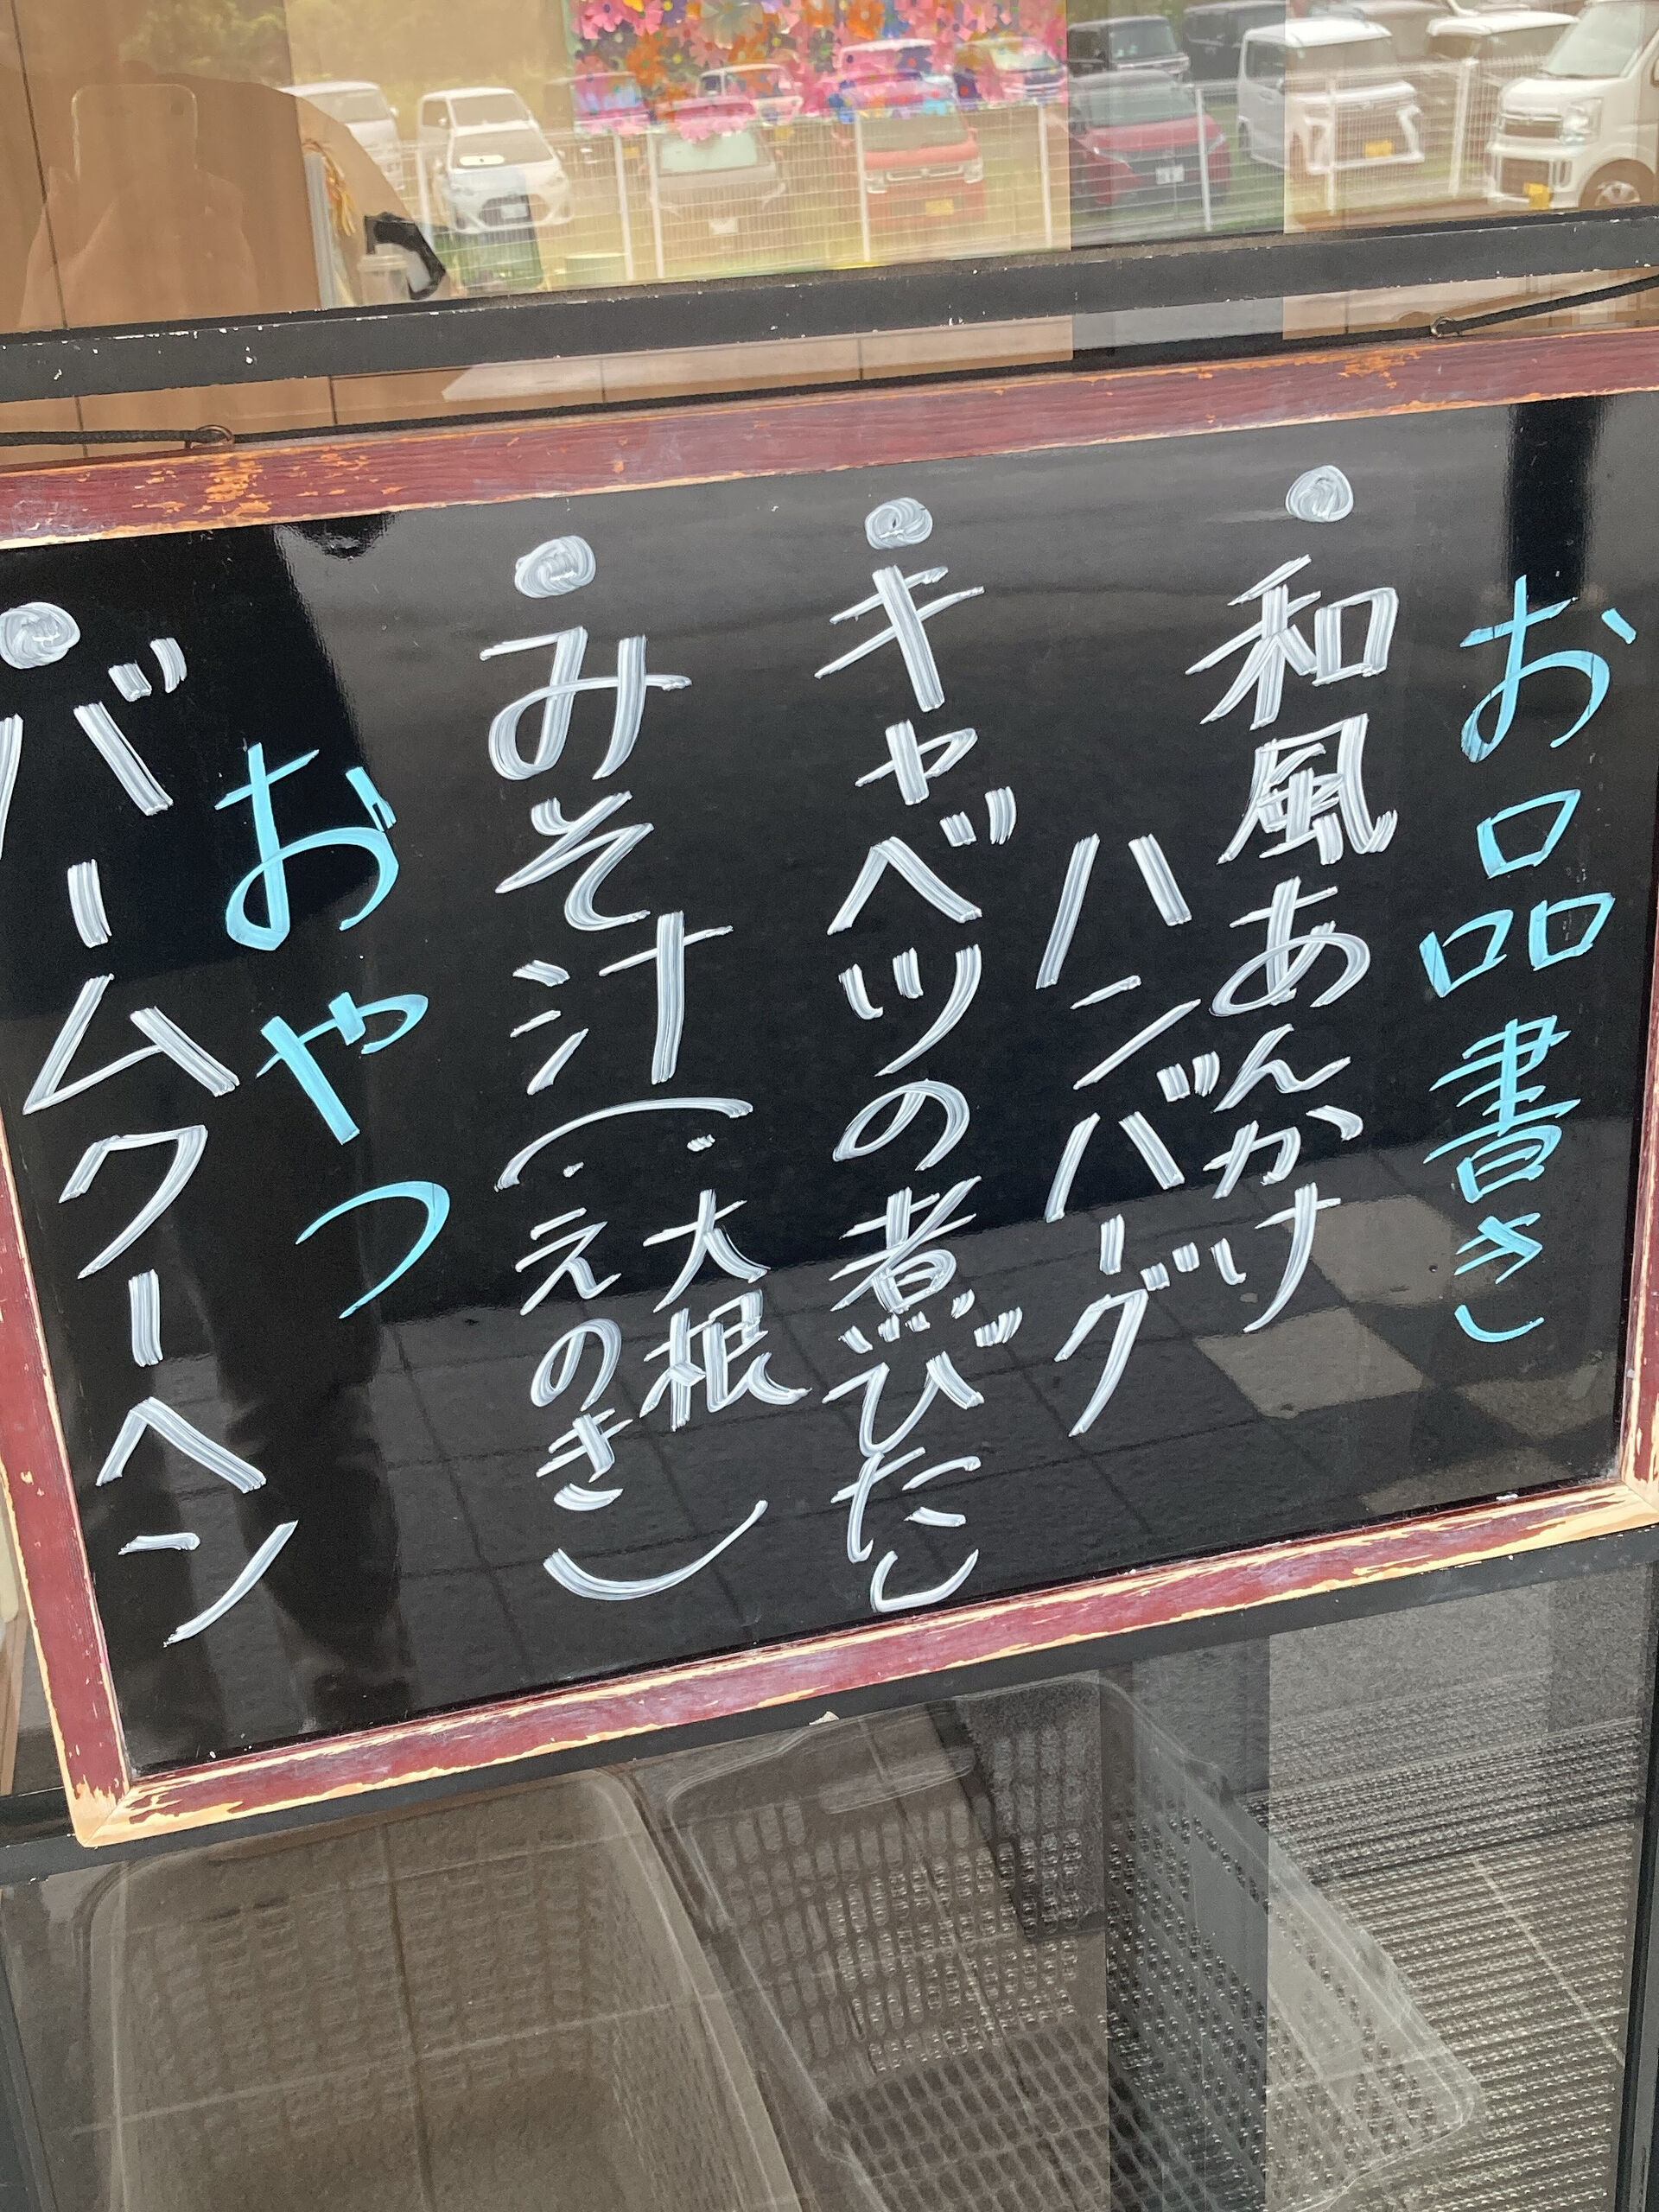 お品書き
・和風あんかけ
ハンバーグ
・キャベツの煮びたし
・みそ汁(・大根
・えのき)
おやつ
・バームクーヘン